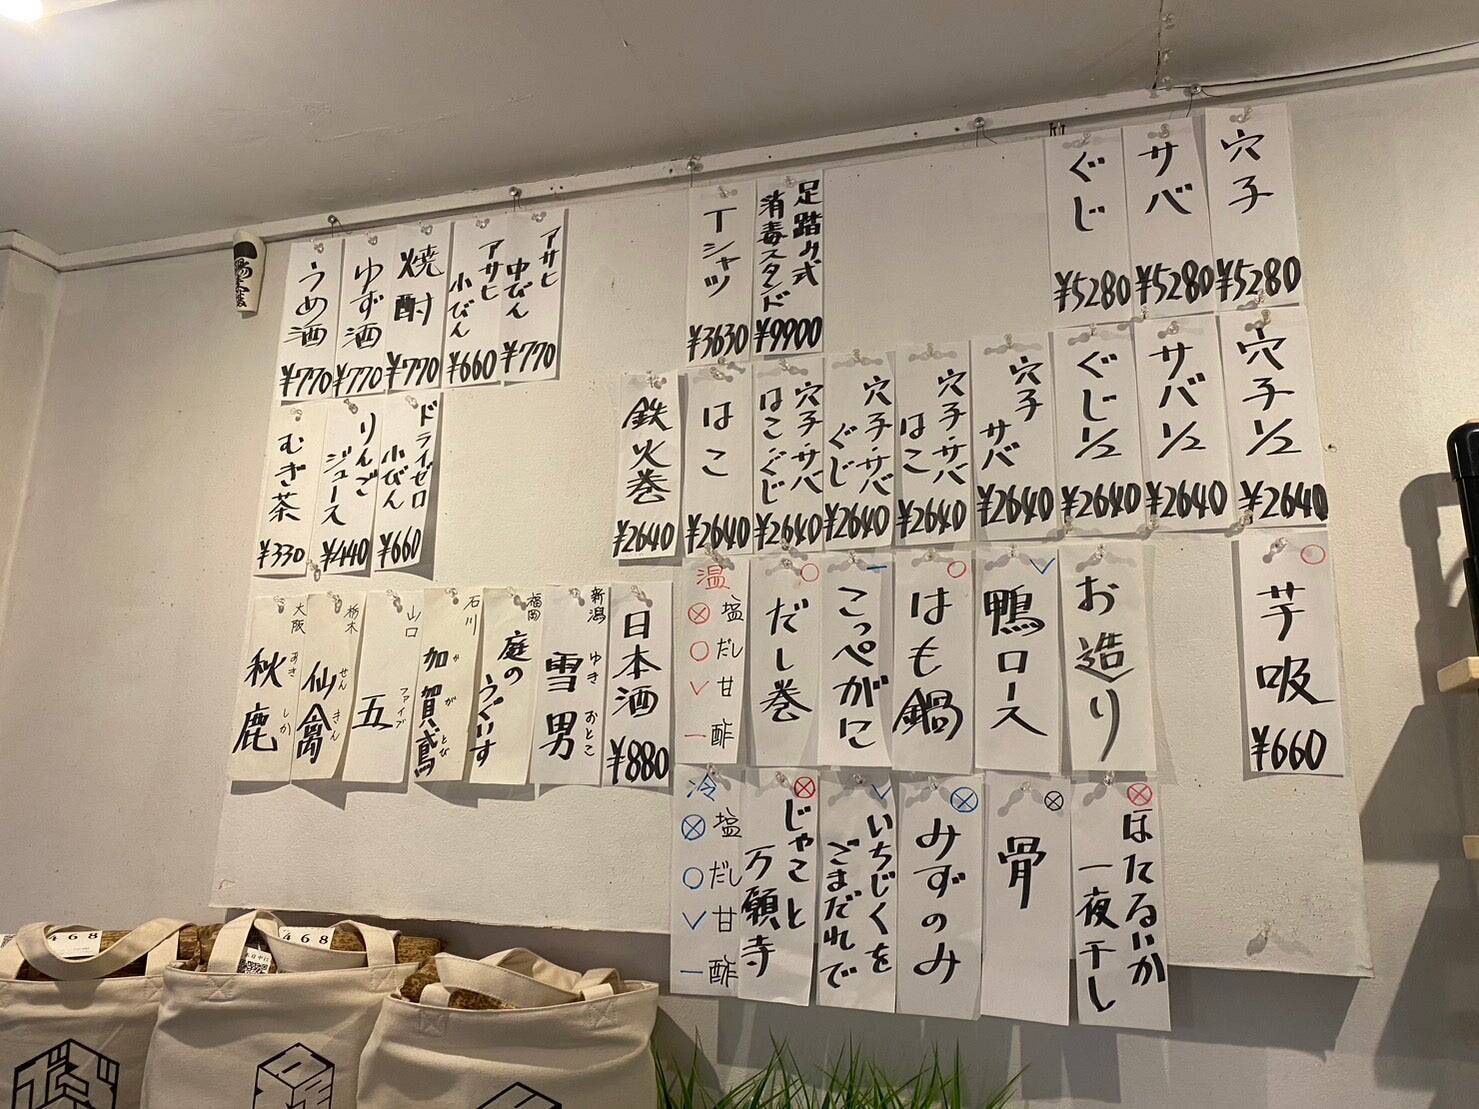 穴子
¥5280
サバ
¥5280
ぐじ
¥5280
足踏み式
消毒スタンド
¥9900
Tシャツ
¥3630
アサヒ
中びん
¥770
アサヒ
小びん
¥660
焼酎
¥770
ゆず酒
¥770
うめ酒
¥770
穴子1/2
¥2640
サバ1/2
¥2640
ぐじ1/2
¥2640
穴子
サバ
¥2640
穴子・サバ
はこ
¥2640
穴子・サバ
ぐじ
¥2640
穴子・サバ
はこ・ぐじ
¥2640
はこ
¥2640
鉄火巻
¥2640
ドライゼロ
小びん
¥660
りんご
ジュース
¥440
むぎ茶
¥330
芋吸
¥660
お造り
鴨ロース
はも鍋
こっぺがに
だし巻
温
塩
だし
甘
酢
日本酒
¥880
新潟
雪男
ゆきおとこ
福岡
庭の
うぐいす
石川
加賀鳶
かがとび
山口
五
ファイブ
栃木
仙禽
せんきん
大阪
秋鹿
あきしか
ほたるいか
一夜干し
骨
みずのみ
いちじくを
ごまだれで
じゃこと
万願寺
冷
塩
だし
甘
酢
468
468